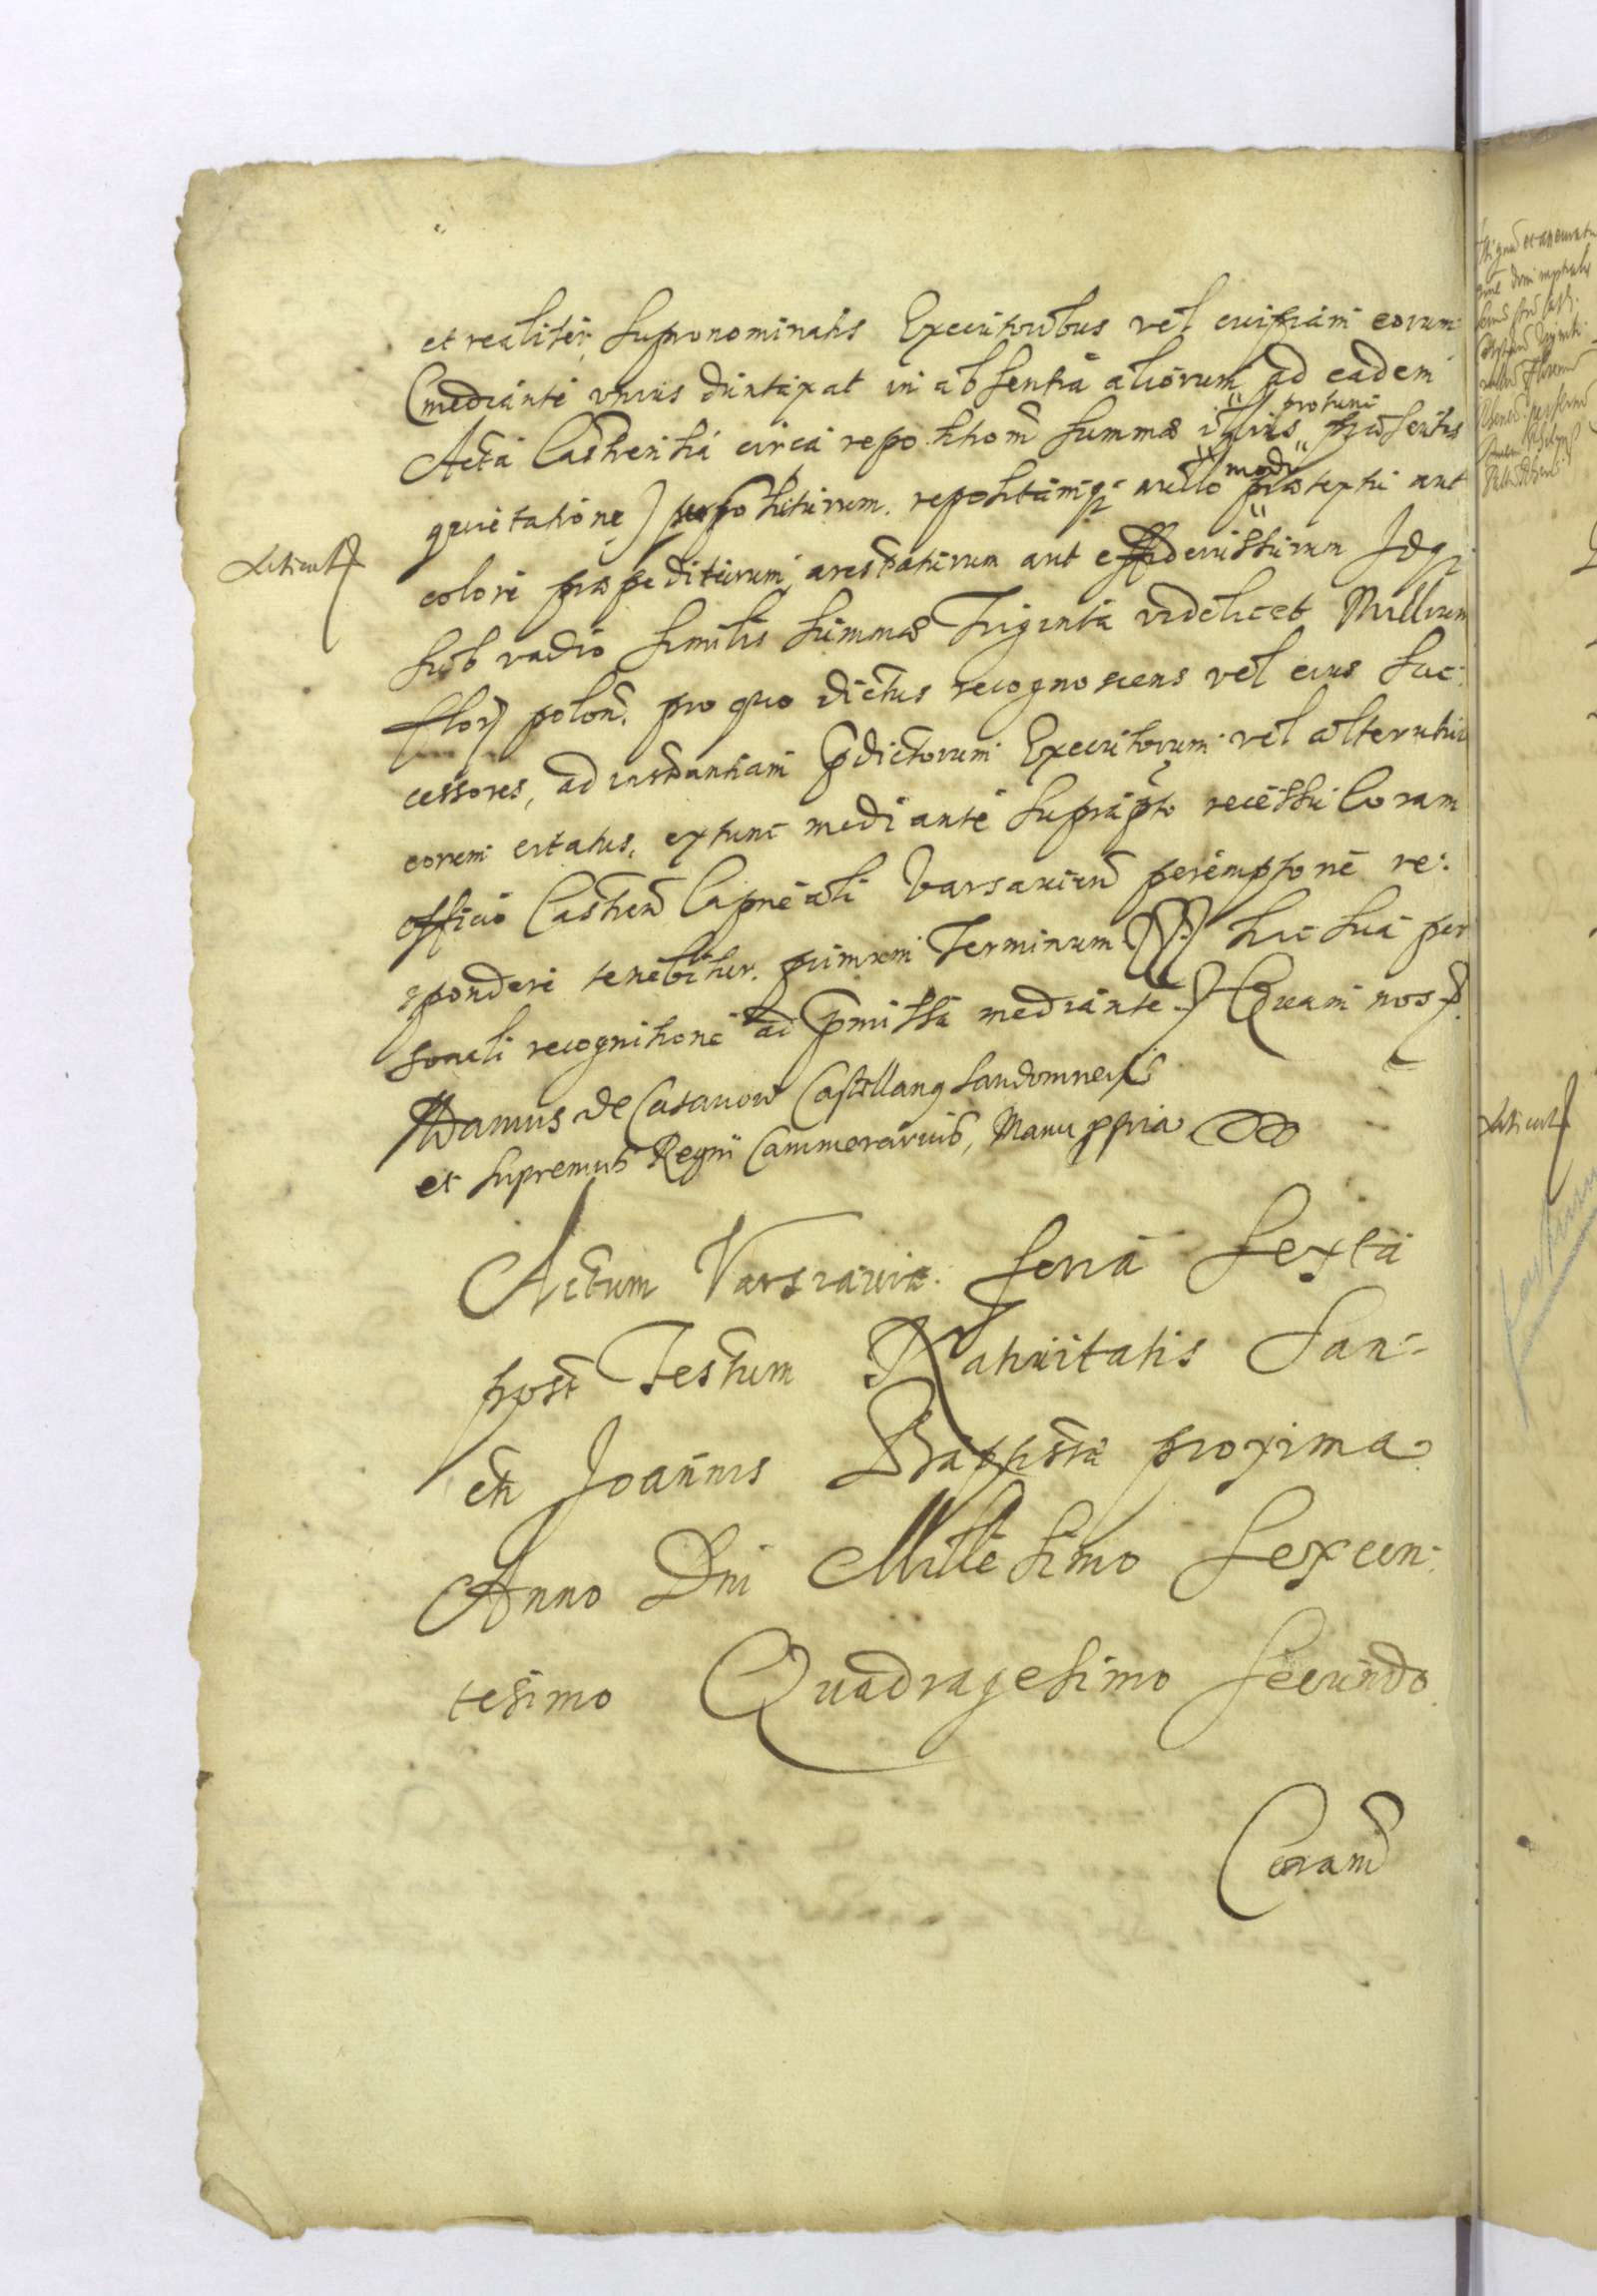 et realiter, supranominatis Executoribus vel cuipiam eorum
(mediante unius duntaxat in absentia aliorum ad eadem
Acta Castrensia circa repositionem summae illius pro tunc praesentis
quietatione) repositurum. repositamq; nullo modo praetextu aut
colore praepediturum, arestaturum aut Idq;
sub vadio similis summae Triginta videlicet Millium
flor. polon. pro quo dictus recognoscens vel eius suc:
cessores, ad instantiam pdictorum Executorum vel alterutrius
eorum citatus, extunc mediante recessu Coram
officio Castren Capneali Varsavien peremptorie re:
spondere tenebitur. primum Terminum hac sua per
sonali recognitione ad pmissa mediante. Quam nos
Adamus de Casanow Castellanus Sandomirien
et Supremus Regni Cammerarius, Manu ppria
Actum Varsaviae feria sexta
post Festum Nativitatis San:
cti Joannis Baptistae proxima
Anno Dni Millesimo Sexcen:
tesimo Quadragesimo Secundo
Coram